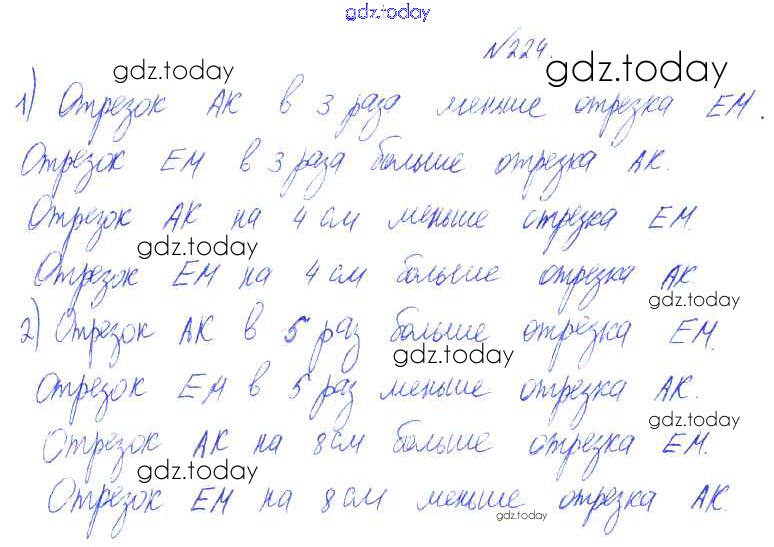 gdz.today
№224.
gdz.today gdz.today
1) Отрезок АК в 3 раза меньше отрезка ЕМ.
Отрезок ЕМ в 3 раза больше отрезка АК.
Отрезок АК на 4 см меньше отрезка ЕМ.
gdz.today
Отрезок ЕМ на 4 см больше отрезка АК.
gdz.today
2) Отрезок АК в 5 раз больше отрезка ЕМ.
gdz.today
Отрезок ЕМ в 5 раз меньше отрезка АК.
gdz.today
Отрезок АК на 8 см больше отрезка ЕМ.
gdz.today
Отрезок ЕМ на 8 см меньше отрезка АК.
gdz.today